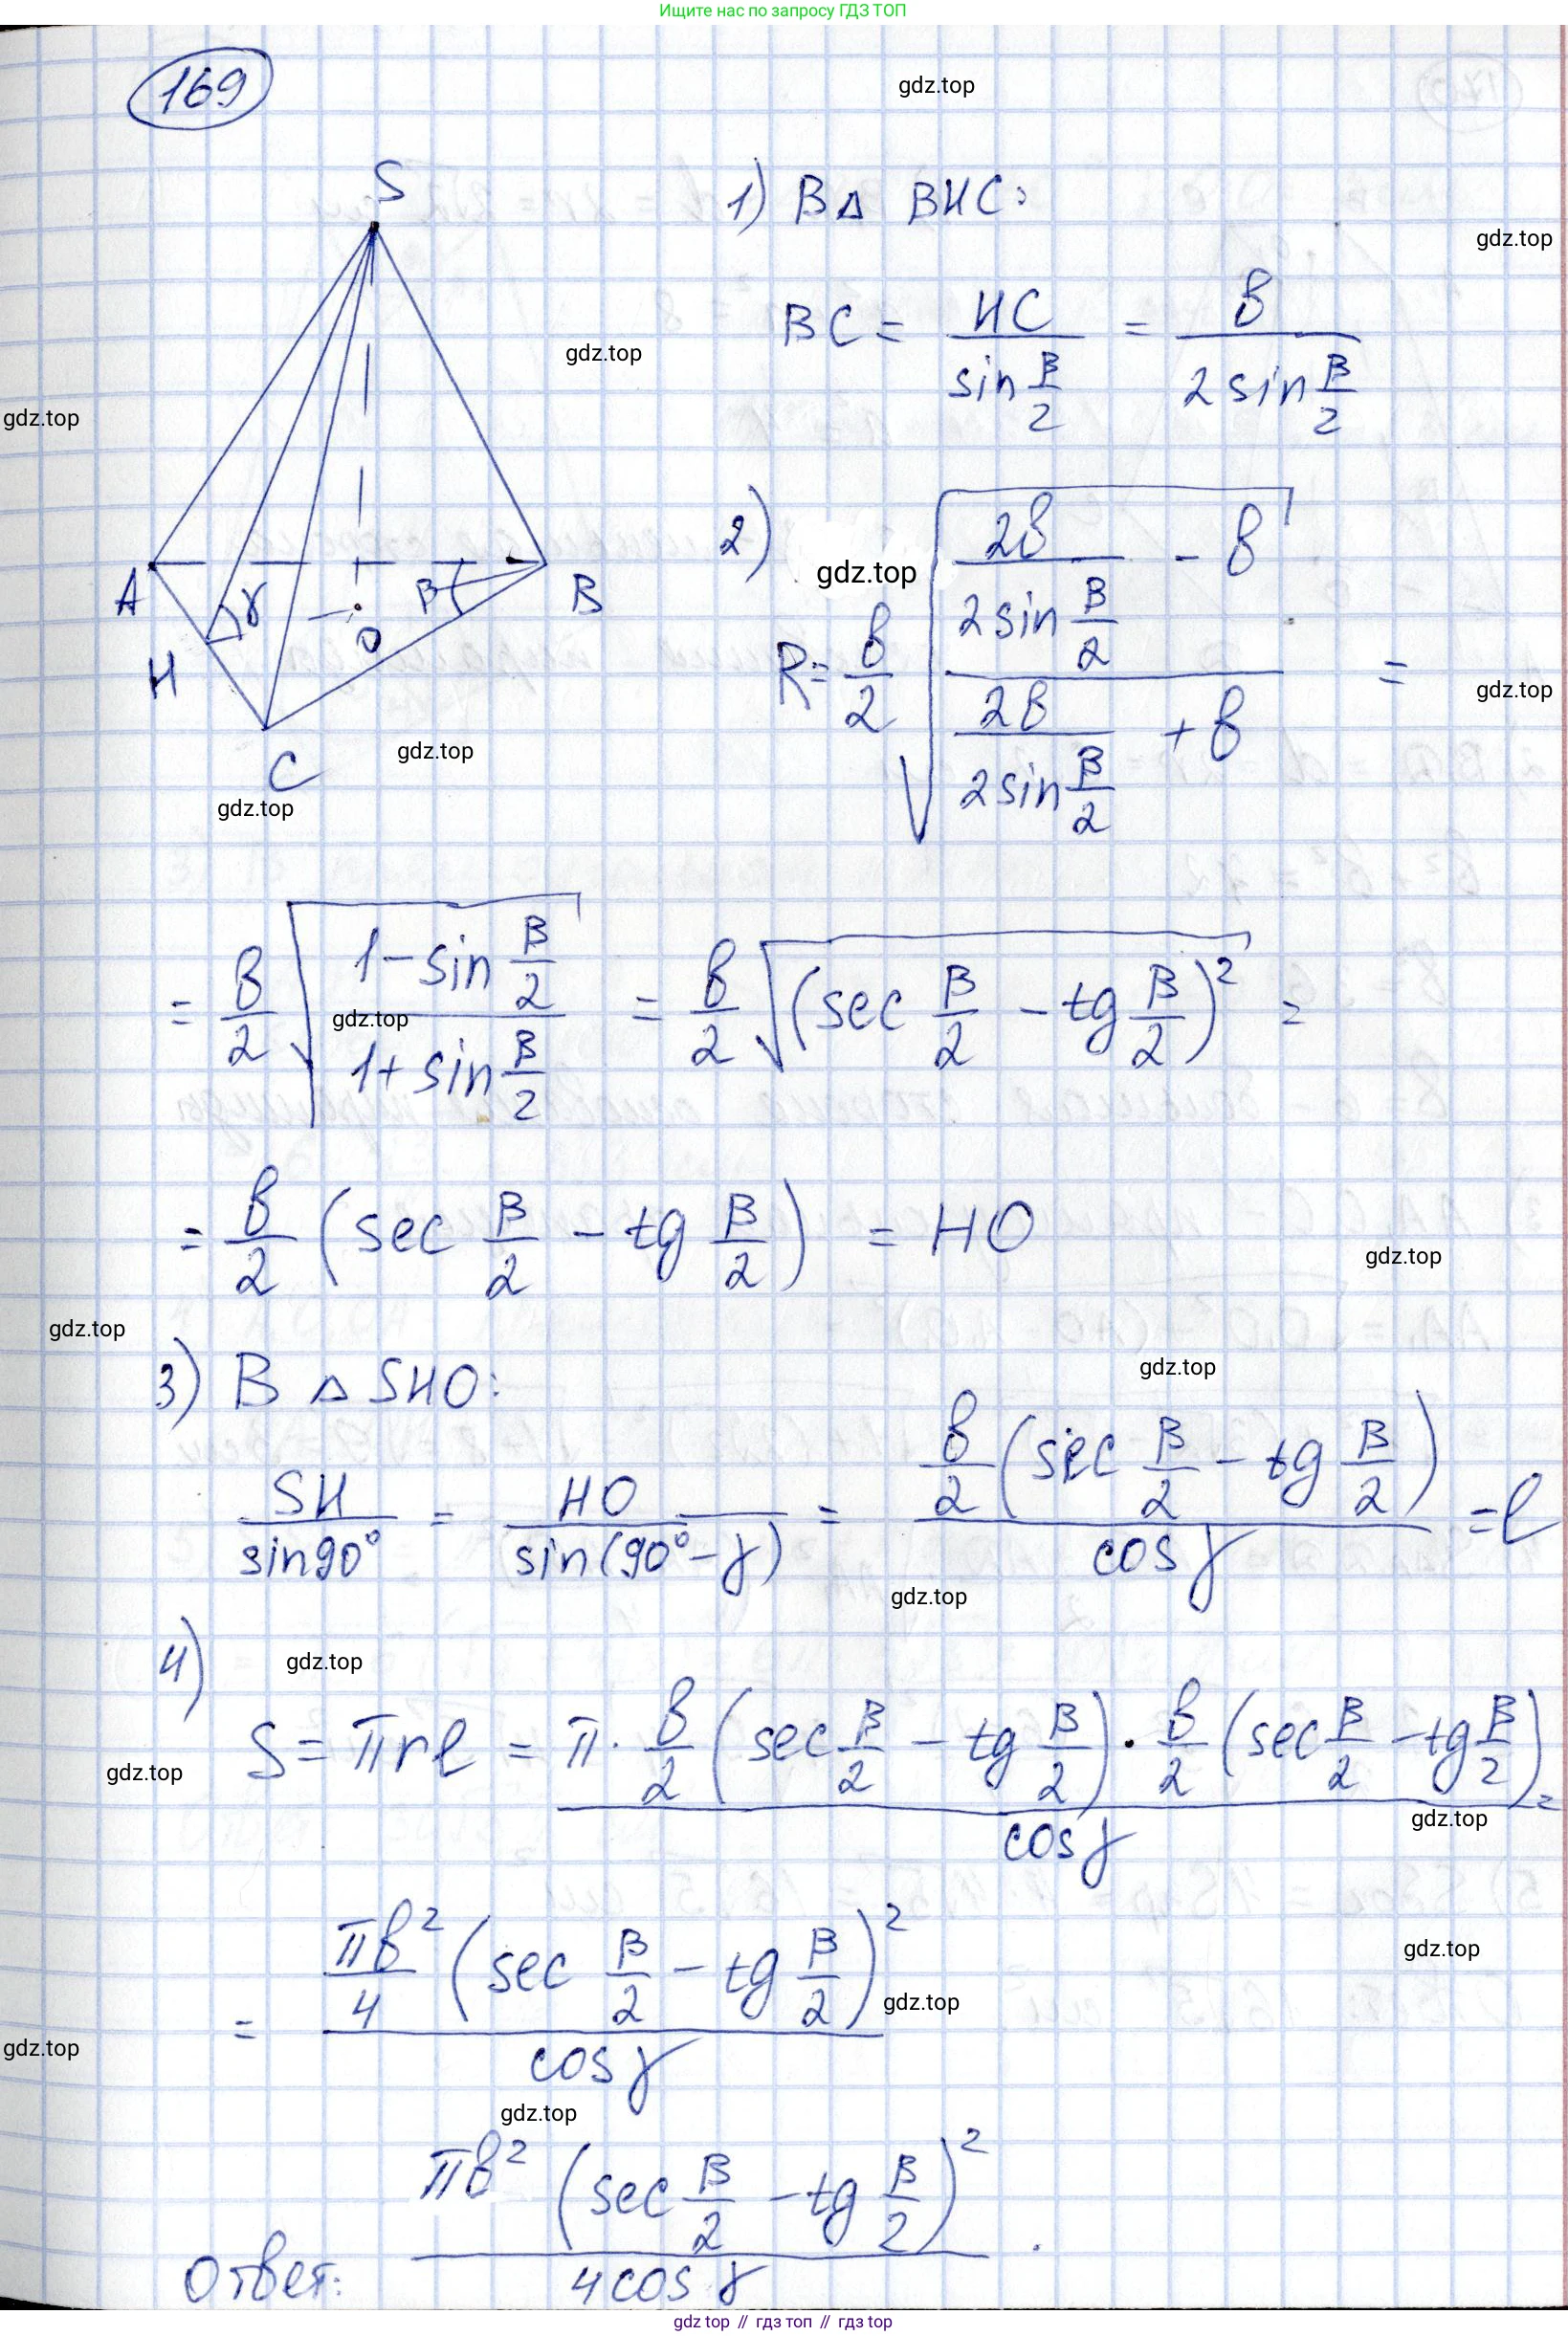 Ищите нас по запросу ГДЗ ТОП
169
gdz.top
S
1) В Δ BHC:
gdz.top
BC = HC / sin β/2 = b / 2 sin β/2
gdz.top
gdz.top
2)
gdz.top
R = b/2 √((2b / 2 sin β/2 - b) / (2b / 2 sin β/2 + b)) =
A γ O β B
H
gdz.top
gdz.top
C
gdz.top
= b/2 √((1 - sin β/2) / (1 + sin β/2)) = b/2 √(sec β/2 - tg β/2)² =
gdz.top
= b/2 (sec β/2 - tg β/2) = HO
gdz.top
gdz.top
3) В Δ SHO:
gdz.top
SH / sin 90° = HO / sin(90° - γ) = b/2 (sec β/2 - tg β/2) / cos γ = l
gdz.top
4)
gdz.top
S = πrl = π · b/2 (sec β/2 - tg β/2) · b/2 (sec β/2 - tg β/2) / cos γ =
gdz.top
gdz.top
= πb²/4 (sec β/2 - tg β/2)² / cos γ
gdz.top
gdz.top
gdz.top
gdz.top
Ответ: πb² (sec β/2 - tg β/2)² / 4 cos γ .
gdz top // гдз топ // гдз top